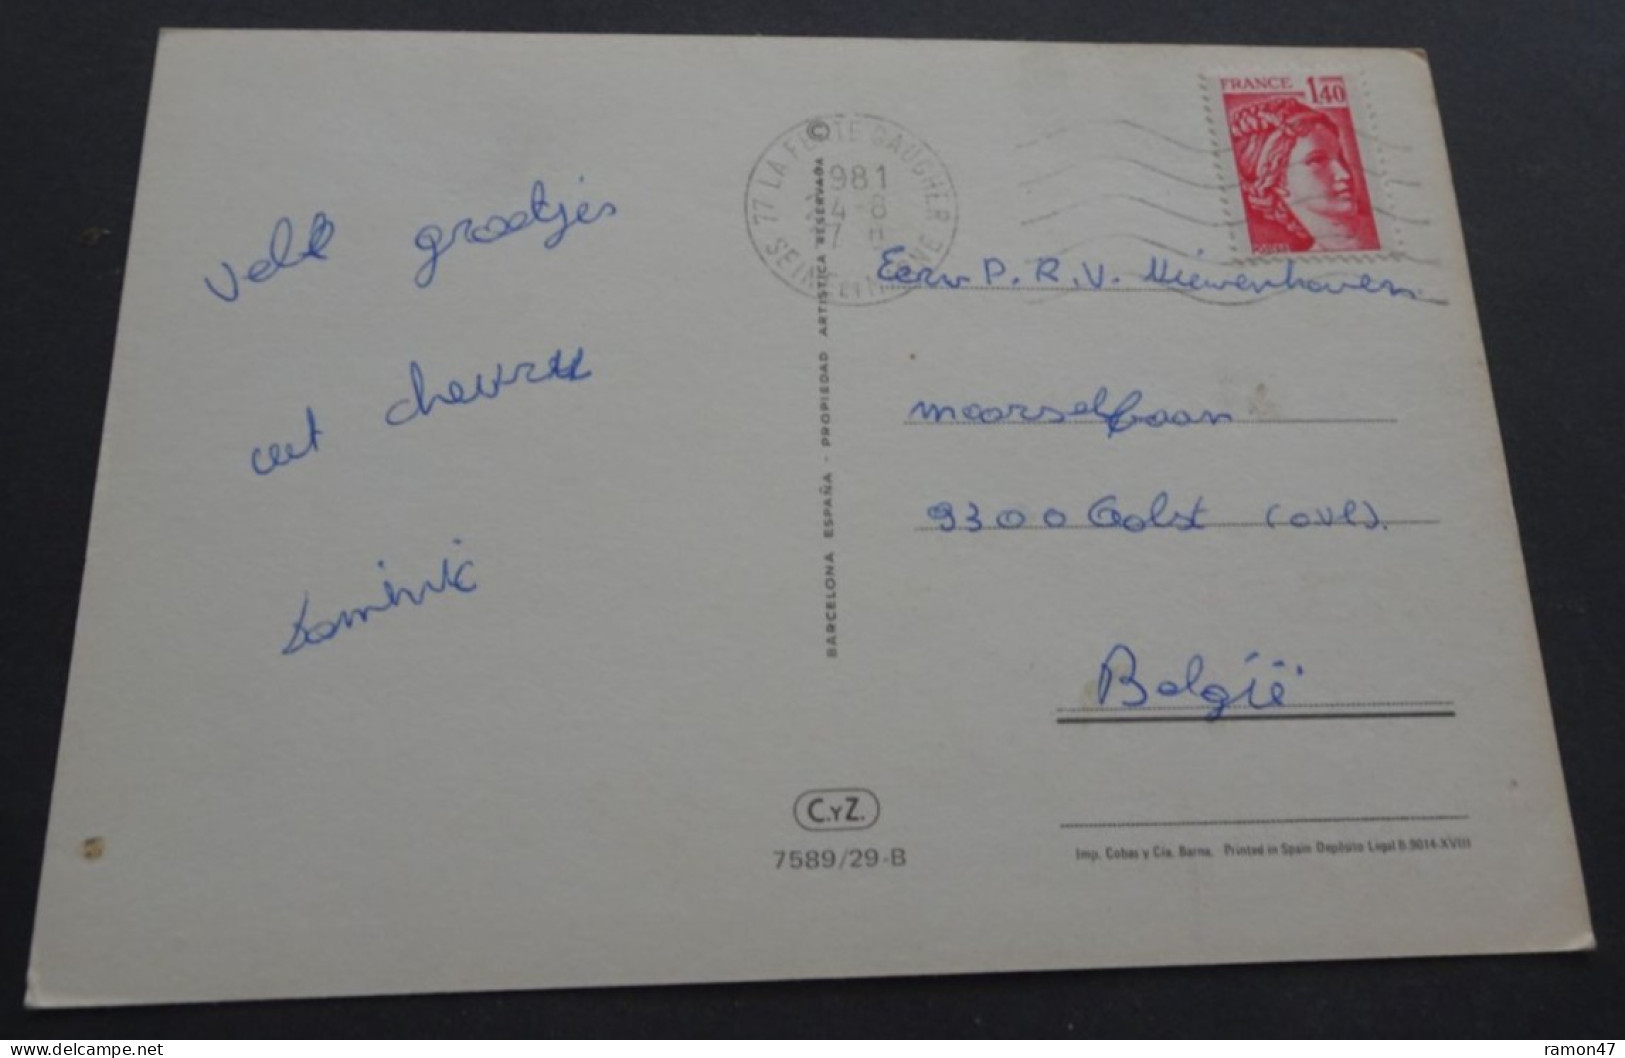 FRANCE 1,40
77 LA FERTE GAUCHER
1981
4-8
SEINE ET MARNE
Veel groetjes
uit chevru
Dominic
Eerw P. R. V. Nieuwenhoven
moorselbaan
9300 Aalst (OVL).
België
BARCELONA ESPAÑA - PROPIEDAD ARTISTICA RESERVADA ©
C.YZ.
7589/29-B
Imp. Cobas y Cía. Barna. Printed in Spain Depósito Legal B.9014-XVIII
ramon47